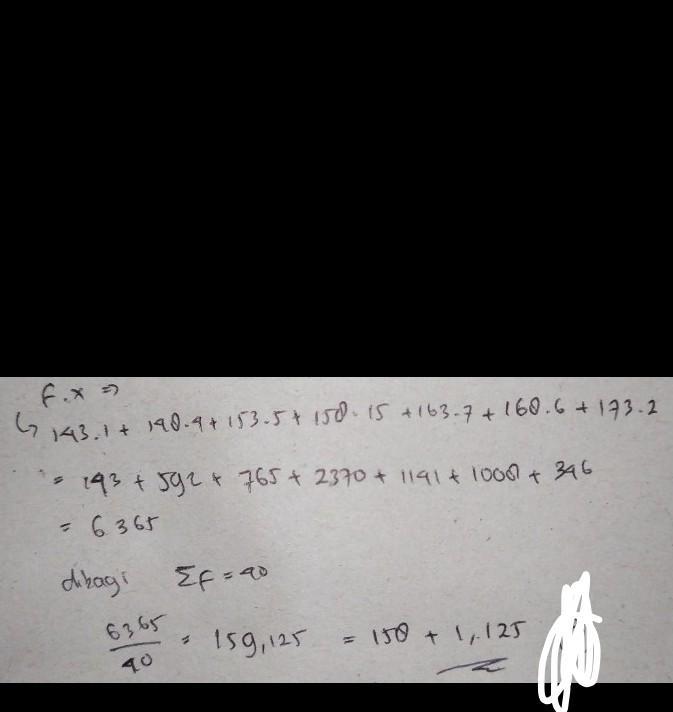 F.x ⇒
↳ 143.1 + 148.4 + 153.5 + 158.15 + 163.7 + 168.6 + 173.2
= 143 + 592 + 765 + 2370 + 1141 + 1008 + 346
= 6365
dibagi ΣF = 40
6365/40 = 159,125 = 158 + 1,125